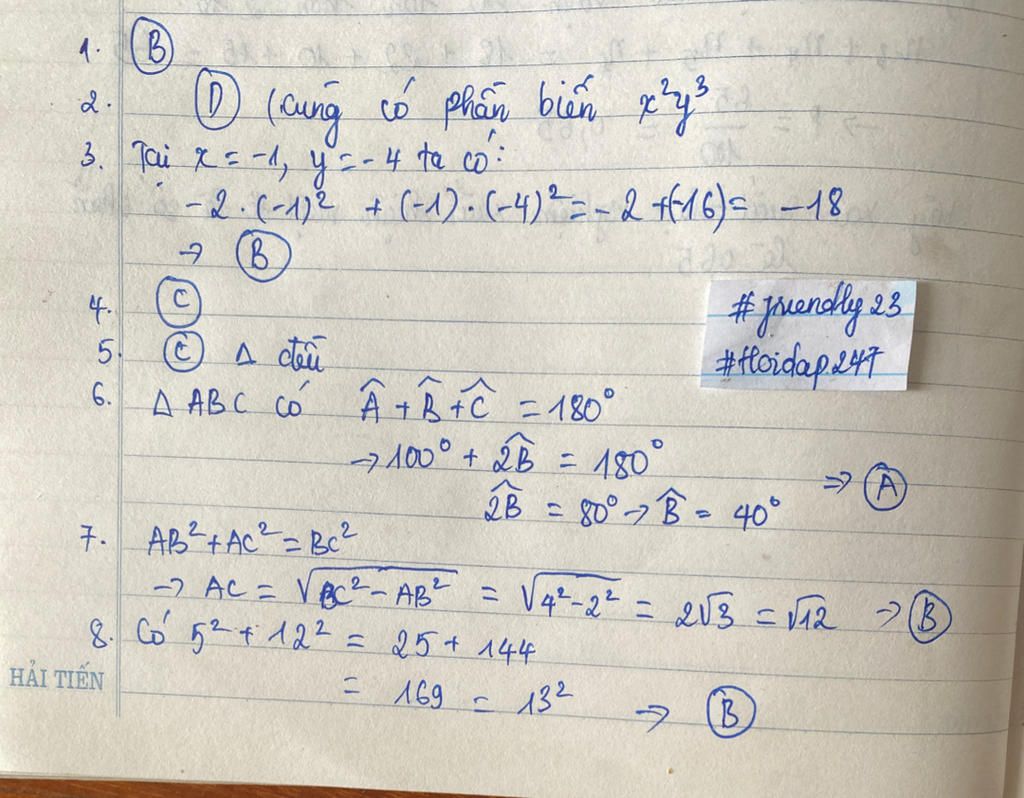 1. B
2. D (cùng có phần biến x²y³
3. Tại x = -1, y = -4 ta có:
-2 . (-1)² + (-1) . (-4)² = -2 + (-16) = -18
→ B
4. C
5. C Δ đều
# friendly 23
#Hoidap.247
6. Δ ABC có Â + B̂ + Ĉ = 180°
→ 100° + 2B̂ = 180°
2B̂ = 80° → B̂ = 40° ⇒ A
7. AB² + AC² = BC²
→ AC = √(BC² - AB²) = √(4² - 2²) = 2√3 = √12 → B
8. Có 5² + 12² = 25 + 144
= 169 = 13² → B
HẢI TIẾN